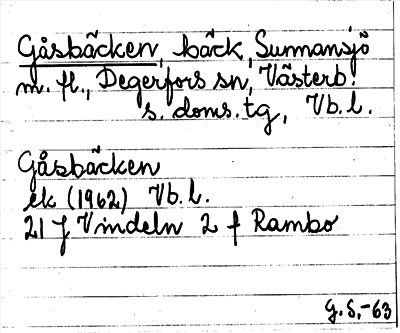 Gåsbäcken, bäck, Sunnansjö
m. fl., Degerfors sn, Västerb.
s. doms. tg, Vb. l.
Gåsbäcken
ek (1962) Vb. l.
21 J Vindeln 2 f Rambo
G. S. -63